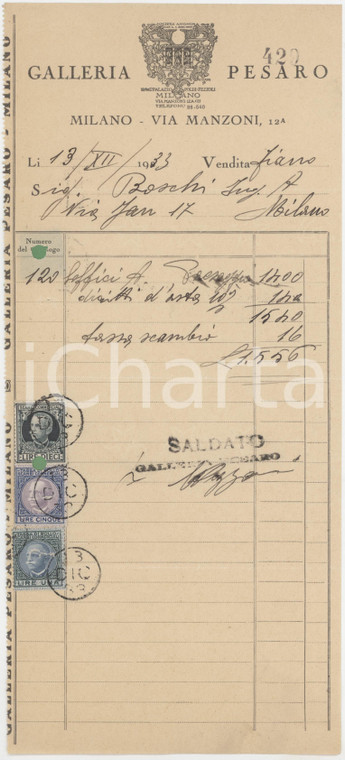 420
GALLERIA PESARO
MILANO
MILANO - VIA MANZONI, 12A
Li 13/XII/1933 Vendita
Sig. Boschi Ing. A
Via Jan 17 Milano
Numero
del catalogo
120 Soffici A. 1400
diritti d'asta 10% 140
1540
tassa scambio 16
£ 1.556
iCharta
SALDATO
GALLERIA PESARO
LIRE DIECI
LIRE CINQUE
LIRE UNA
13
DIC
33
GALLERIA PESARO - MILANO